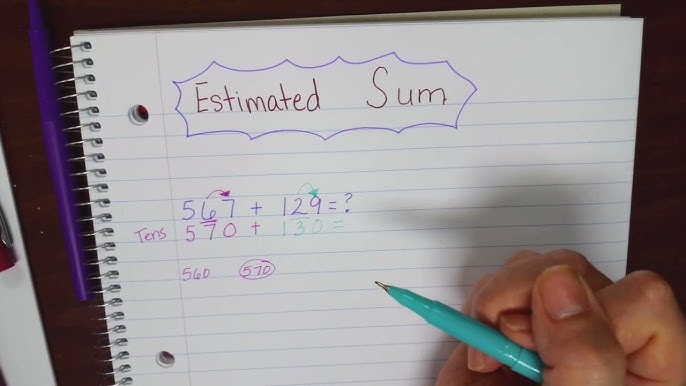 Estimated Sum
567 + 129 = ?
Tens 570 + 130 =
560 570